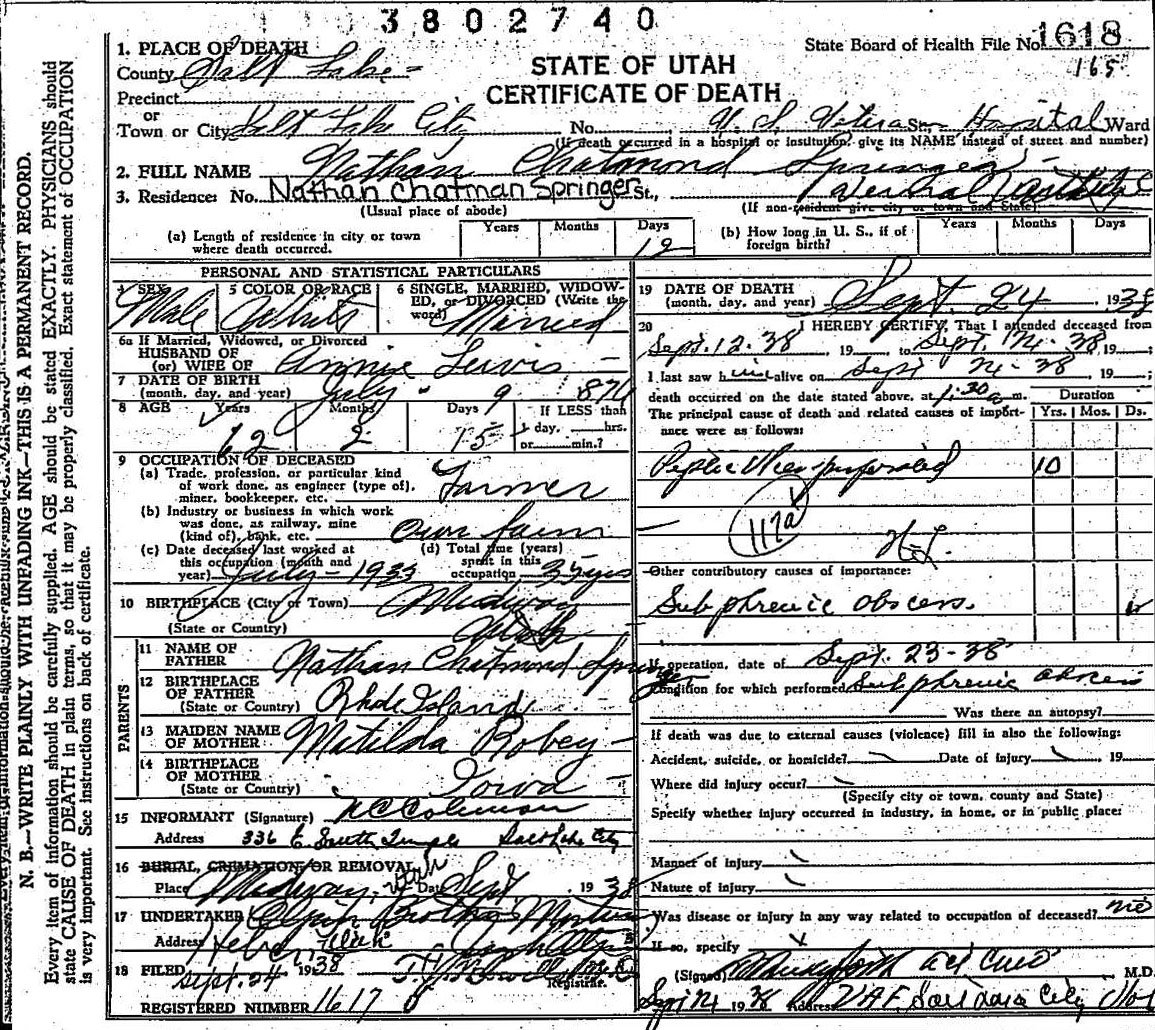 3802740
State Board of Health File No. 1618
165
STATE OF UTAH
CERTIFICATE OF DEATH
1. PLACE OF DEATH
County Salt Lake
Precinct
or
Town or City Salt Lake City No. U. S. Veterans St., Hospital Ward
(If death occurred in a hospital or institution, give its NAME instead of street and number)
2. FULL NAME Nathan Chatmond Springer
3. Residence: No. Nathan Chatman Springer St.,
(Usual place of abode) (If non-resident give city or town and State)
(a) Length of residence in city or town where death occurred. Years Months Days 12
(b) How long in U. S., if of foreign birth? Years Months Days
PERSONAL AND STATISTICAL PARTICULARS
4 SEX Male
5 COLOR OR RACE White
6 SINGLE, MARRIED, WIDOWED, or DIVORCED (Write the word) Married
6a If Married, Widowed, or Divorced
HUSBAND OF
(or) WIFE OF Annie Lewis
7 DATE OF BIRTH
(month, day, and year) July 9 876
8 AGE Years 62 Months 2 Days 15 If LESS than
day, hrs.
or min.?
9 OCCUPATION OF DECEASED
(a) Trade, profession, or particular kind
of work done, as engineer (type of),
miner, bookkeeper, etc. Farmer
(b) Industry or business in which work
was done, as railway, mine
(kind of), bank, etc. Own farm
(c) Date deceased last worked at
this occupation (month and
year) July - 1933
(d) Total time (years)
spent in this
occupation 35 yrs
10 BIRTHPLACE (City or Town) Midway
(State or Country) Utah
PARENTS
11 NAME OF
FATHER Nathan Chatmond Springer
12 BIRTHPLACE
OF FATHER
(State or Country) Rhode Island
13 MAIDEN NAME
OF MOTHER Matilda Robey
14 BIRTHPLACE
OF MOTHER
(State or Country) Iowa
15 INFORMANT (Signature)
Address 336 E. South Temple Salt Lake City
16 BURIAL, CREMATION, OR REMOVAL
Place Midway, Utah Date Sept 1938
17 UNDERTAKER
Address Heber Utah
18 FILED Sept. 24 1938
Registrar.
REGISTERED NUMBER 1617
19 DATE OF DEATH
(month, day, and year) Sept. 24 1938
20 I HEREBY CERTIFY, That I attended deceased from
Sept. 12-38, 19 , to Sept. 24-38, 19 ;
I last saw him alive on Sept 24-38, 19 ;
death occurred on the date stated above, at 1:30 a m.
The principal cause of death and related causes of importance were as follows:
Duration
Yrs. Mos. Ds.
Peptic Ulcer perforated 10
117a
Other contributory causes of importance:
Subphrenic abscess.
If operation, date of Sept. 23-38
Condition for which performed Subphrenic abscess
Was there an autopsy?
If death was due to external causes (violence) fill in also the following:
Accident, suicide, or homicide? Date of injury , 19
Where did injury occur?
(Specify city or town, county and State)
Specify whether injury occurred in industry, in home, or in public place:
Manner of injury
Nature of injury
Was disease or injury in any way related to occupation of deceased? no
If so, specify
(Signed) M.D.
1938 Address
N. B.—WRITE PLAINLY WITH UNFADING INK—THIS IS A PERMANENT RECORD.
Every item of information should be carefully supplied. AGE should be stated EXACTLY. PHYSICIANS should
state CAUSE OF DEATH in plain terms, so that it may be properly classified. Exact statement of OCCUPATION
is very important. See instructions on back of certificate.